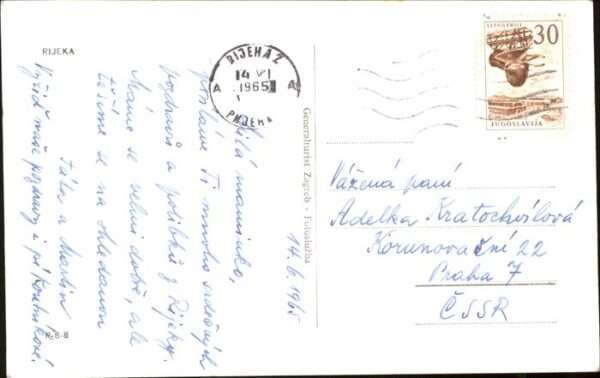 RIJEKA
RIJEKA 2
14 VI
1965
A A
РИЈЕКА
30
JUGOSLAVIJA
Generalturist Zagreb - Fotoslužba
14. 6. 1965
Milá maminko,
posíláme Ti mnoho srdečných
pozdravů a polibků z Rijeky.
Máme se velmi dobře, ale
těšíme se na shledanou
Táta a Martin
Vyřiď naše pozdravy i pí
Vážená paní
Adelka Kratochvílová
Korunovační 22
Praha 7
ČSSR
R-8-8